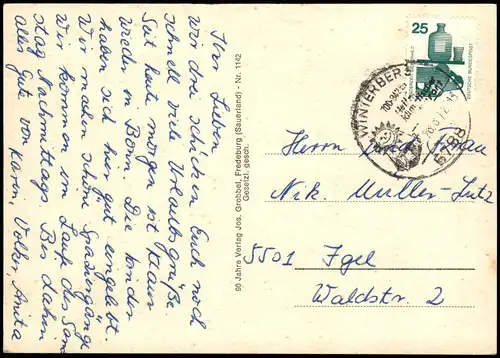 Ihr Lieben
wir drei schicken Euch noch
schnell viele Urlaubsgrüße.
Seit heute morgen ist Klaus
wieder in Bonn. Die Kinder
haben sich hier gut eingelebt.
Wir machen schöne Spaziergänge
Wir kommen im Laufe des Sams
stag Nachmittags. Bis dahin
alles Gute von Karin, Volker, Anita
90 Jahre Verlag Jos. Grobbel, Fredeburg (Sauerland) - Nr. 1142
Gesetzl. gesch.
25
DEUTSCHE BUNDESPOST
WINTERBERG
Herrn und Frau
Nik. Müller-Lutz
5501 Igel
Waldstr. 2